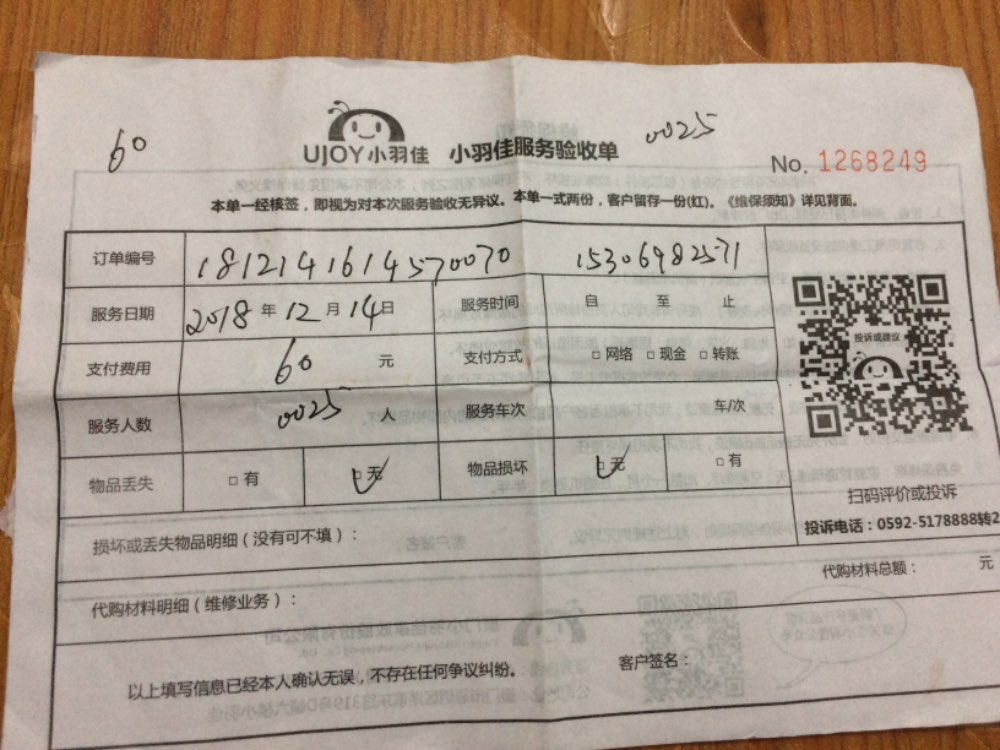 60
0025
UJOY小羽佳 小羽佳服务验收单
No. 1268249
本单一经核签，即视为对本次服务验收无异议。本单一式两份，客户留存一份(红)。《维保须知》详见背面。
订单编号 1812141614570070 15306982571
服务日期 2018 年 12 月 14 日 服务时间 自 至 止
支付费用 60 元 支付方式 □ 网络 □ 现金 □ 转账
投诉或建议
服务人数 0025 人 服务车次 车/次
物品丢失 □ 有 □ 无 物品损坏 □ 无 □ 有
扫码评价或投诉
投诉电话：0592-5178888转2
损坏或丢失物品明细（没有可不填）：
代购材料总额： 元
代购材料明细（维修业务）：
以上填写信息已经本人确认无误，不存在任何争议纠纷。 客户签名：